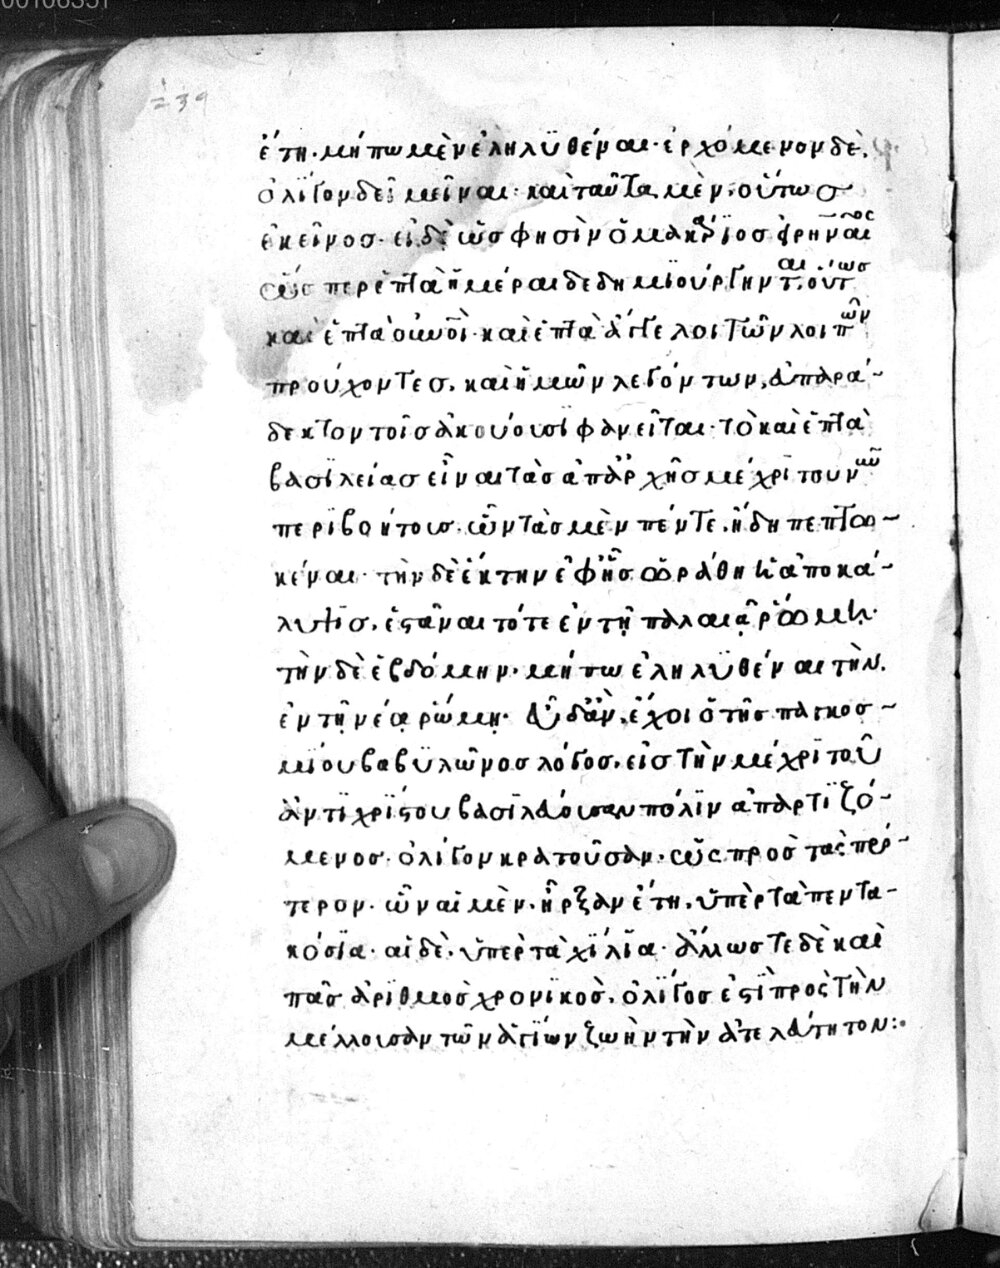 00106351
239
ἔτη· μήπω μὲν ἐληλϋθέναι· ἐρχόμενον δὲ,
ὀλίγον δεῖ μεῖναι· καὶ ταῦτα μὲν, οὕτωσ
ἐκεῖνοσ· εἰ δὲ ὥσ φησὶν ὁ μακάριοσ εἰρηναῖος
ὥσπερ ἑπτὰ ἡμέραι δεδημϊούργηνται· οὕτως
καὶ ἑπτὰ οὐνοὶ· καὶ ἑπτὰ ἄγγελοι τῶν λοιπῶν
προύχοντεσ, καὶ ἡμῶν λεγόντων, ἀπαρά-
δεκτον τοῖσ ἀκούουσϊ φανεῖται· τὸ καὶ ἑπτὰ
βασϊλείασ εἶναι τὰσ ἀπαρχῆσ μέχρϊ τοῦ νῦν
περϊβοήτουσ. ὧν τὰσ μὲν πέντε, ἤδη πεπτω-
κέναι· τὴν δὲ ἕκτην ἐφ ἧσ ὡράθη ἡ ἀποκά-
λυψισ, ἑστᾶναι τότε ἐν τῇ παλαιᾷ ῥώμῃ·
τὴν δὲ ἑβδόμην· μήπω ἐληλϋθέναι τὴν.
ἐν τῇ νέᾳ ῥώμῃ· εὐοδὰν, ἔχοι ὁ τῆσ παγκοσ-
μϊου βαβϋλῶνοσ λόγοσ, εἰσ τὴν μέχρϊ τοῦ
ἀντϊχρϊστου βασϊλεύουσαν πόλϊν ἀπαρτϊζό-
μενοσ. ὀλίγον κρατοῦσαν, ὡς πρὸσ τὰς περ-
τερον· ὧν αἱ μὲν, ἦρξαν ἔτη, ὑπὲρ τὰ πεντα-
κόσϊα· αἱ δὲ, ὑπὲρ τὰ χίλϊα· ἄλλωστε δὲ καὶ
πᾶσ ἀρϊθμὸσ χρονϊκὸσ, ὀλίγοσ ἐστϊ πρὸς τὴν
μέλλουσαν τῶν ἁγϊων ζωὴν τὴν ἀτελεύτητον:·